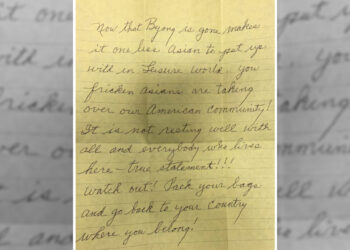 Now that Byong is gone makes
it one less Asian to put up
with in Leisure World. You
fricken asians are taking
over our American community!
It is not resting well with
all and everybody who lives
here – true statement!!!
Watch out! Pack your bags
and go back to your country
where you belong!